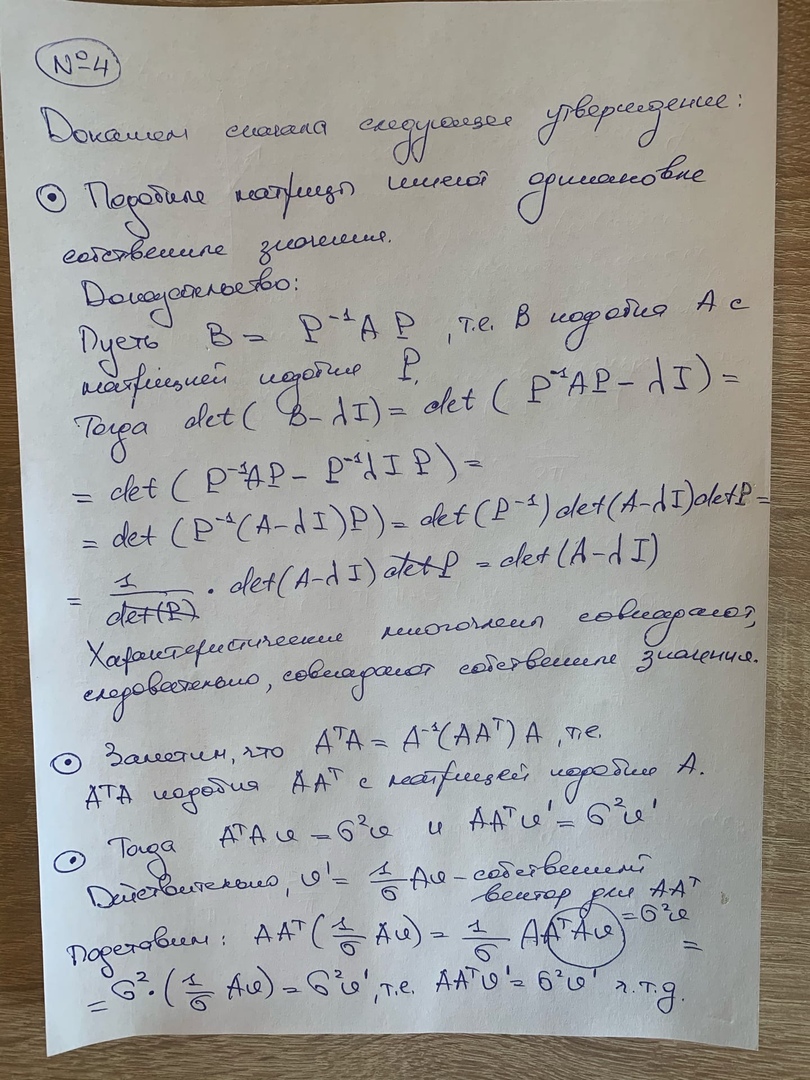 №4
Докажем сначала следующее утверждение:
⊙ Подобные матрицы имеют одинаковые
собственные значения.
Доказательство:
Пусть B = P⁻¹A P, т.е. B подобна A с
матрицей подобия P.
Тогда det( B-λI) = det ( P⁻¹AP - λI) =
= det ( P⁻¹AP - P⁻¹λI P) =
= det (P⁻¹(A-λI)P) = det(P⁻¹)det(A-λI)detP =
= 1/det(P) · det(A-λI) detP = det(A-λI)
Характеристические многочлены совпадают,
следовательно, совпадают собственные значения.
⊙ Заметим, что AᵀA = A⁻¹(AAᵀ) A, т.е.
AᵀA подобна AAᵀ с матрицей подобия A.
⊙ Тогда AᵀAv = σ²v и AAᵀv' = σ²v'
Действительно, v' = 1/σ Av - собственный
вектор для AAᵀ
Подставим: AAᵀ(1/σ Av) = 1/σ AAᵀAv = σ²v =
= σ²·(1/σ Av) = σ²v', т.е. AAᵀv' = σ²v' ч.т.д.